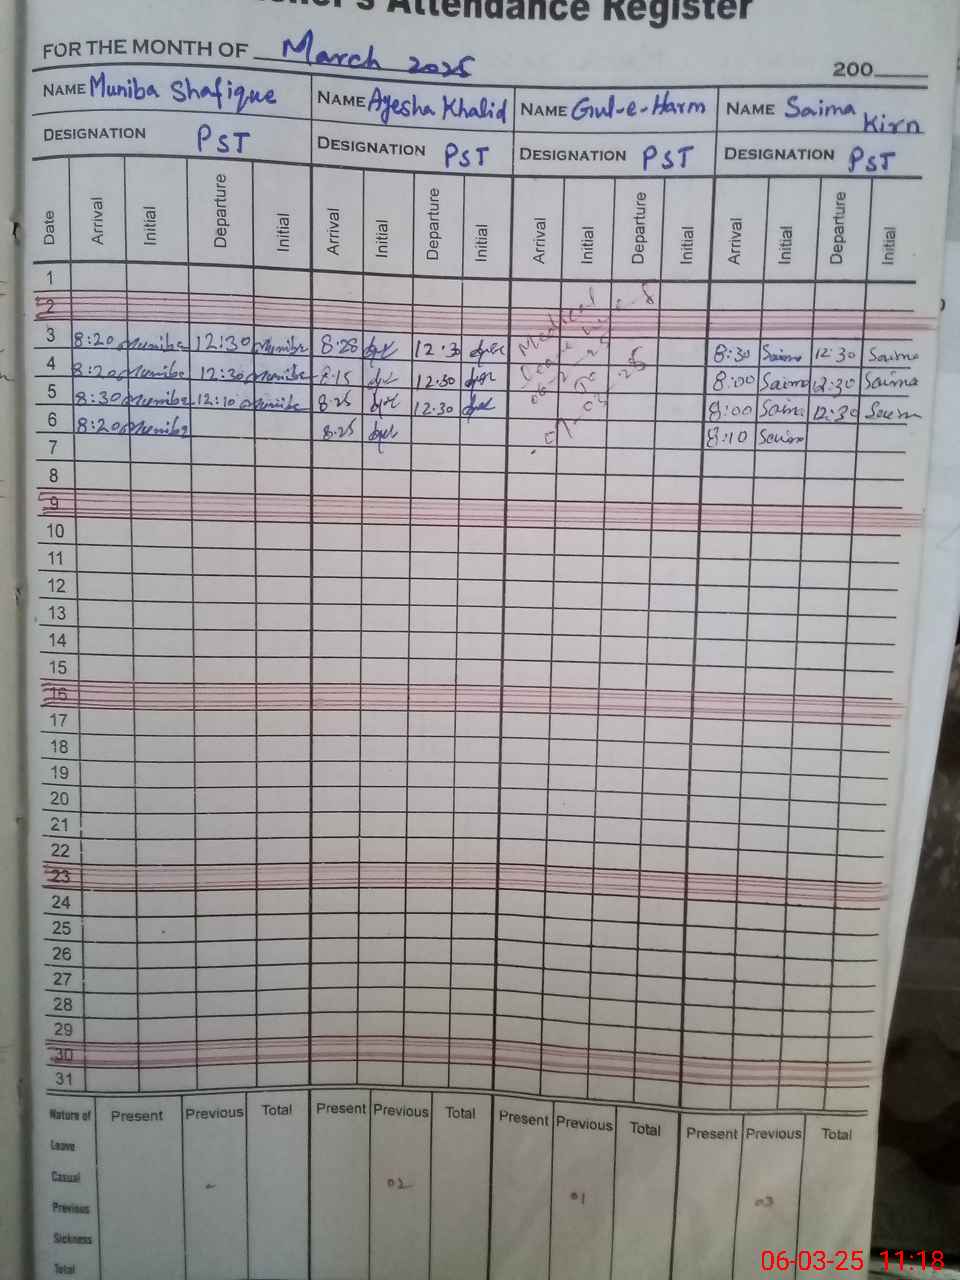 Attendance Register
FOR THE MONTH OF March 2025
200
NAME Muniba Shafique NAME Ayesha Khalid NAME Gul-e-Harm NAME Saima Kirn
DESIGNATION PST DESIGNATION PST DESIGNATION PST DESIGNATION PST
Date Arrival Initial Departure Initial Arrival Initial Departure Initial Arrival Initial Departure Initial Arrival Initial Departure Initial
1
2
3 8:20 Muniba 12:30 Muniba 8:28 12:30 Medical 8:30 Saima 12:30 Saima
4 8:20 Muniba 12:30 Muniba 8:15 12:30 Leave 8:00 Saima 12:30 Saima
5 8:30 Muniba 12:10 Muniba 8:25 12:30 To 8:00 Saima 12:30 Saima
6 8:20 Muniba 8:25 8:10 Saima
7
8
9
10
11
12
13
14
15
16
17
18
19
20
21
22
23
24
25
26
27
28
29
30
31
Nature of Present Previous Total Present Previous Total Present Previous Total Present Previous Total
Leave
Casual 02 01 03
Previous
Sickness
Total
06-03-25 11:18